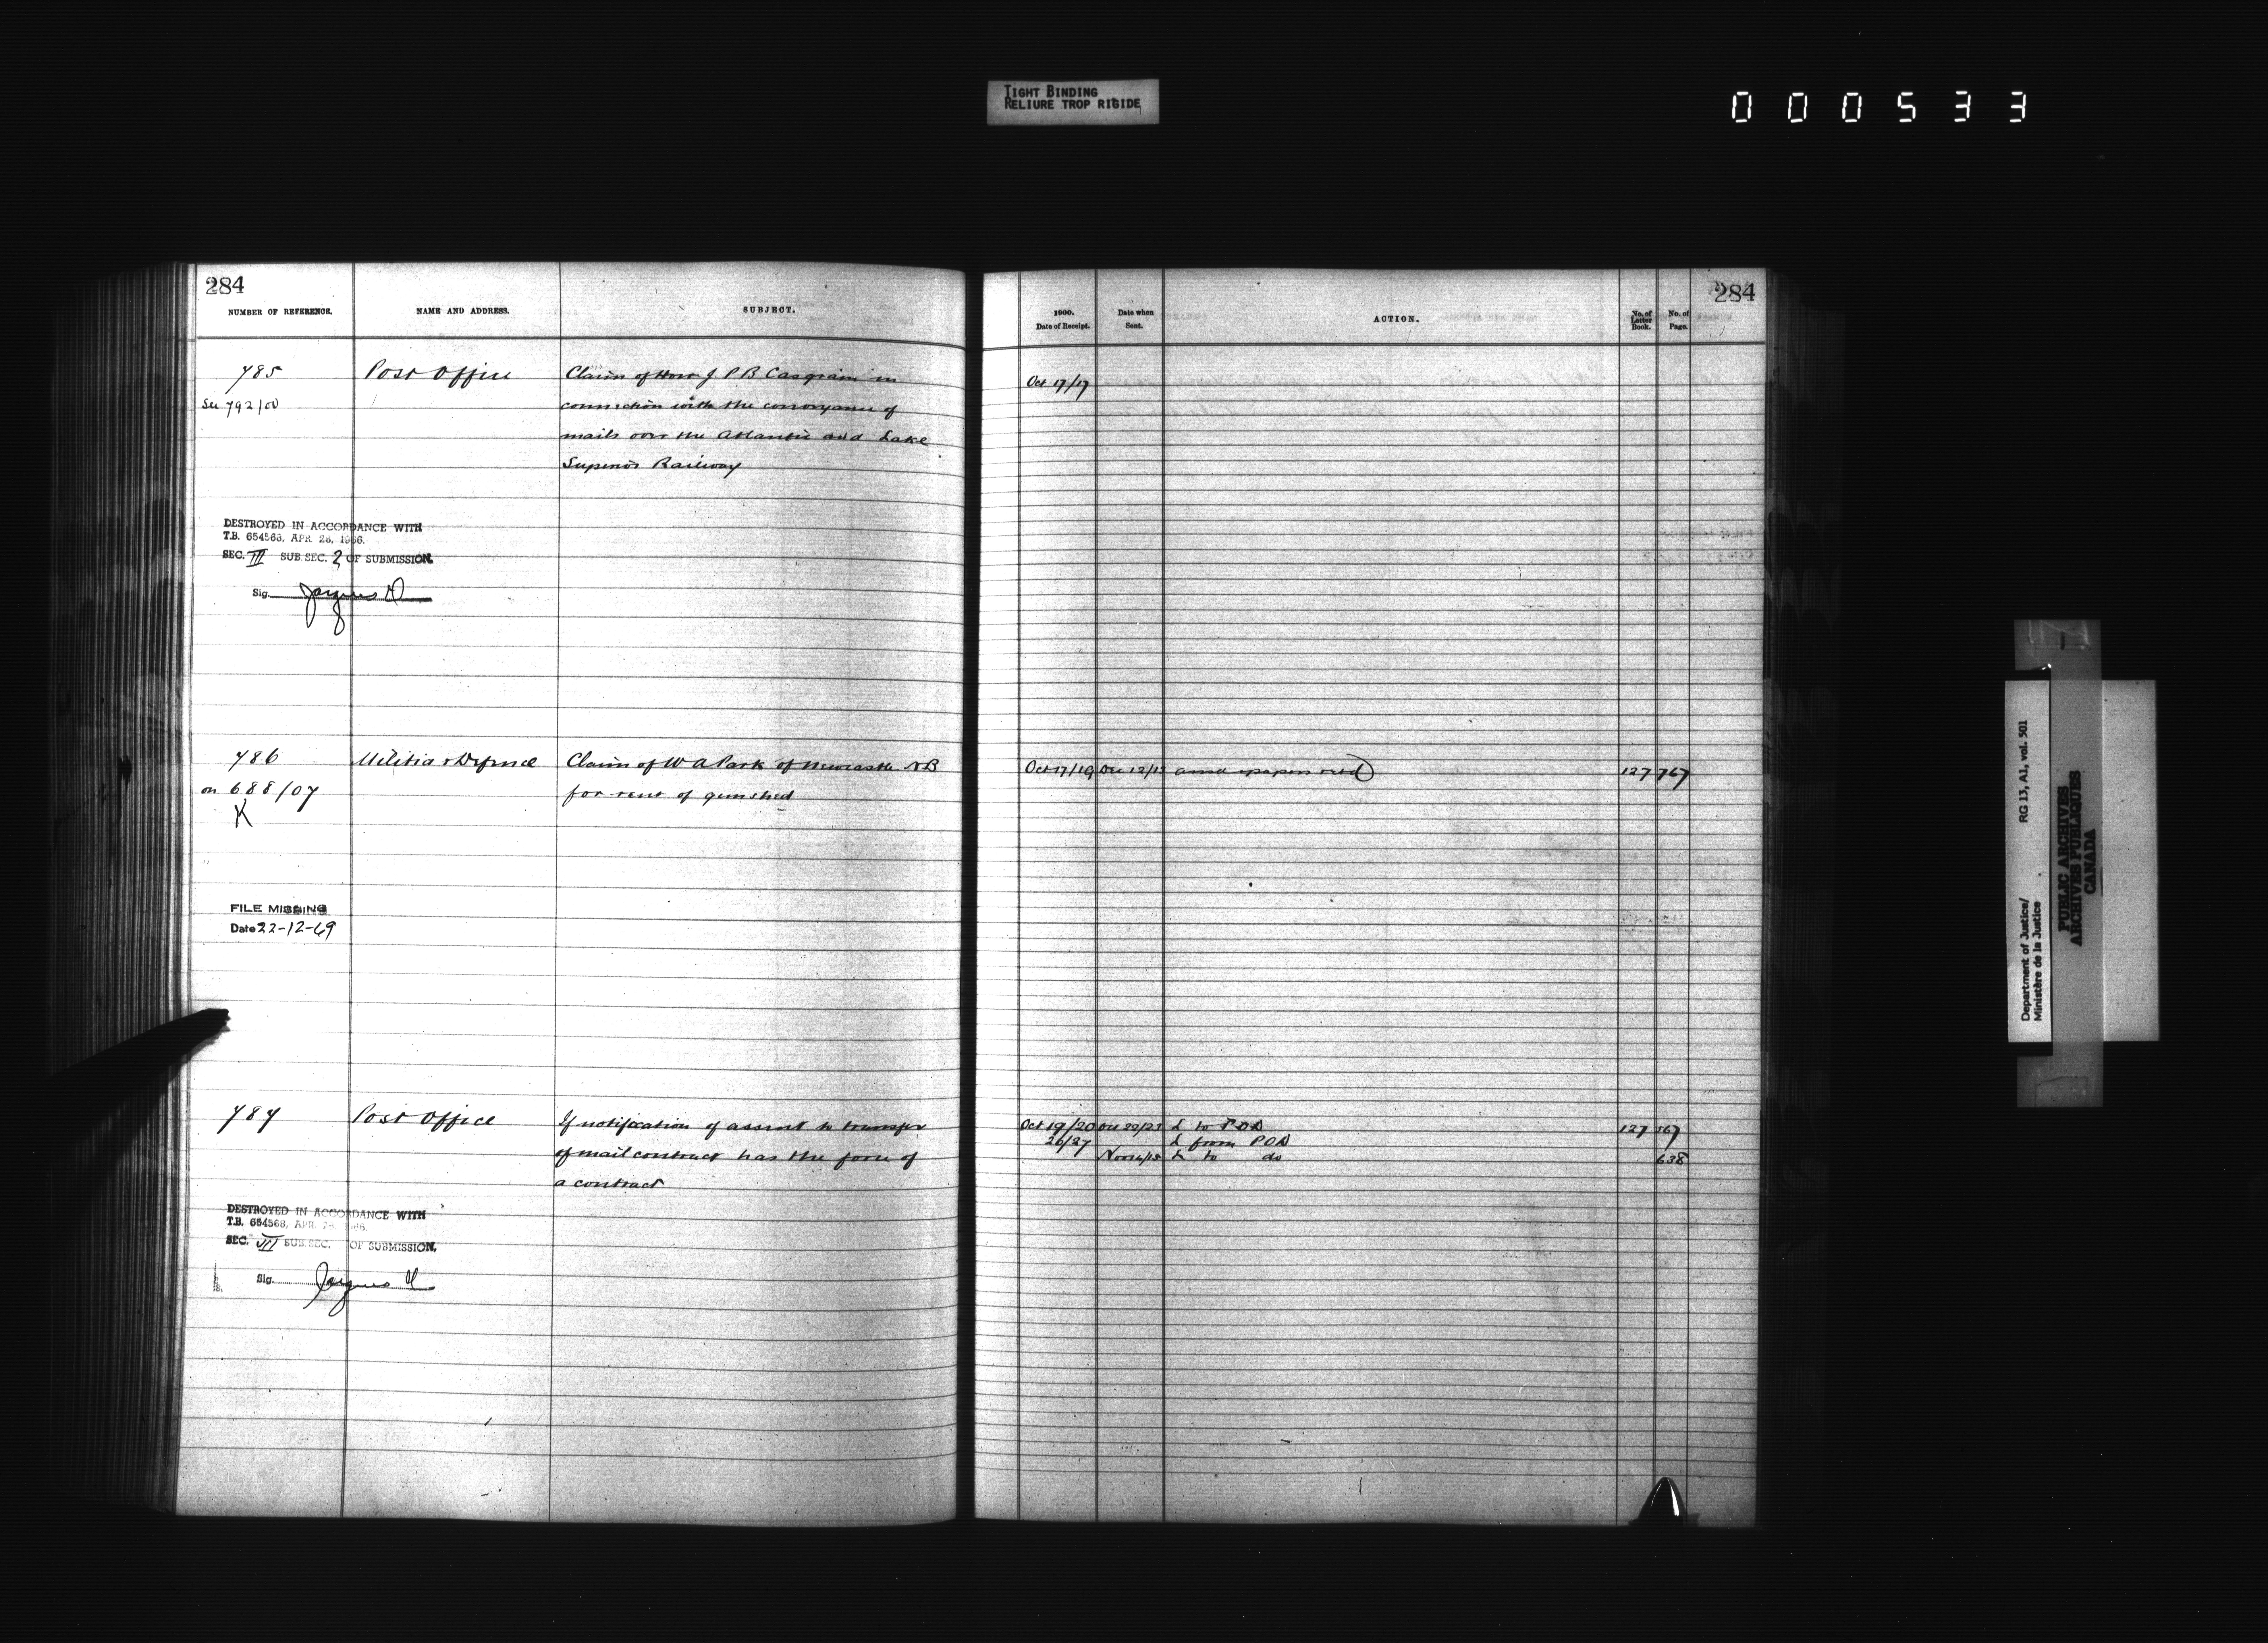 TIGHT BINDING
RELIURE TROP RIGIDE
000533
284
NUMBER OF REFERENCE.
NAME AND ADDRESS.
SUBJECT.
785
Post Office
Claim of Hon J P B Casgrain in
See 792/00
connection with the conveyance of
mails over the Atlantic and Lake
Superior Railway
DESTROYED IN ACCORDANCE WITH
T.B. 654568, APR. 28, 1966.
SEC. III SUB.SEC. 2 OF SUBMISSION.
Sig.
786
Militia & Defence
Claim of W A Park of Newcastle NB
on 688/07
for rent of gunshed
K
FILE MISSING
Date 22-12-69
787
Post Office
If notification of assent to transfer
of mail contract has the force of
a contract
DESTROYED IN ACCORDANCE WITH
T.B. 654568, APR. 28, 1966.
SEC. III SUB.SEC. OF SUBMISSION.
Sig.
284
1900.
Date of Receipt.
Date when
Sent.
ACTION.
No. of
Letter
Book.
No. of
Page.
Oct 17/17
Oct 17/19 Dec 12/13 papers retd 127 767
Oct 19/20 22/23 L to POD 127 567
26/27 L from POD
Nov 15 L to do 638
Department of Justice/
Ministère de la Justice
RG 13, A1, vol. 501
PUBLIC ARCHIVES
ARCHIVES PUBLIQUES
CANADA